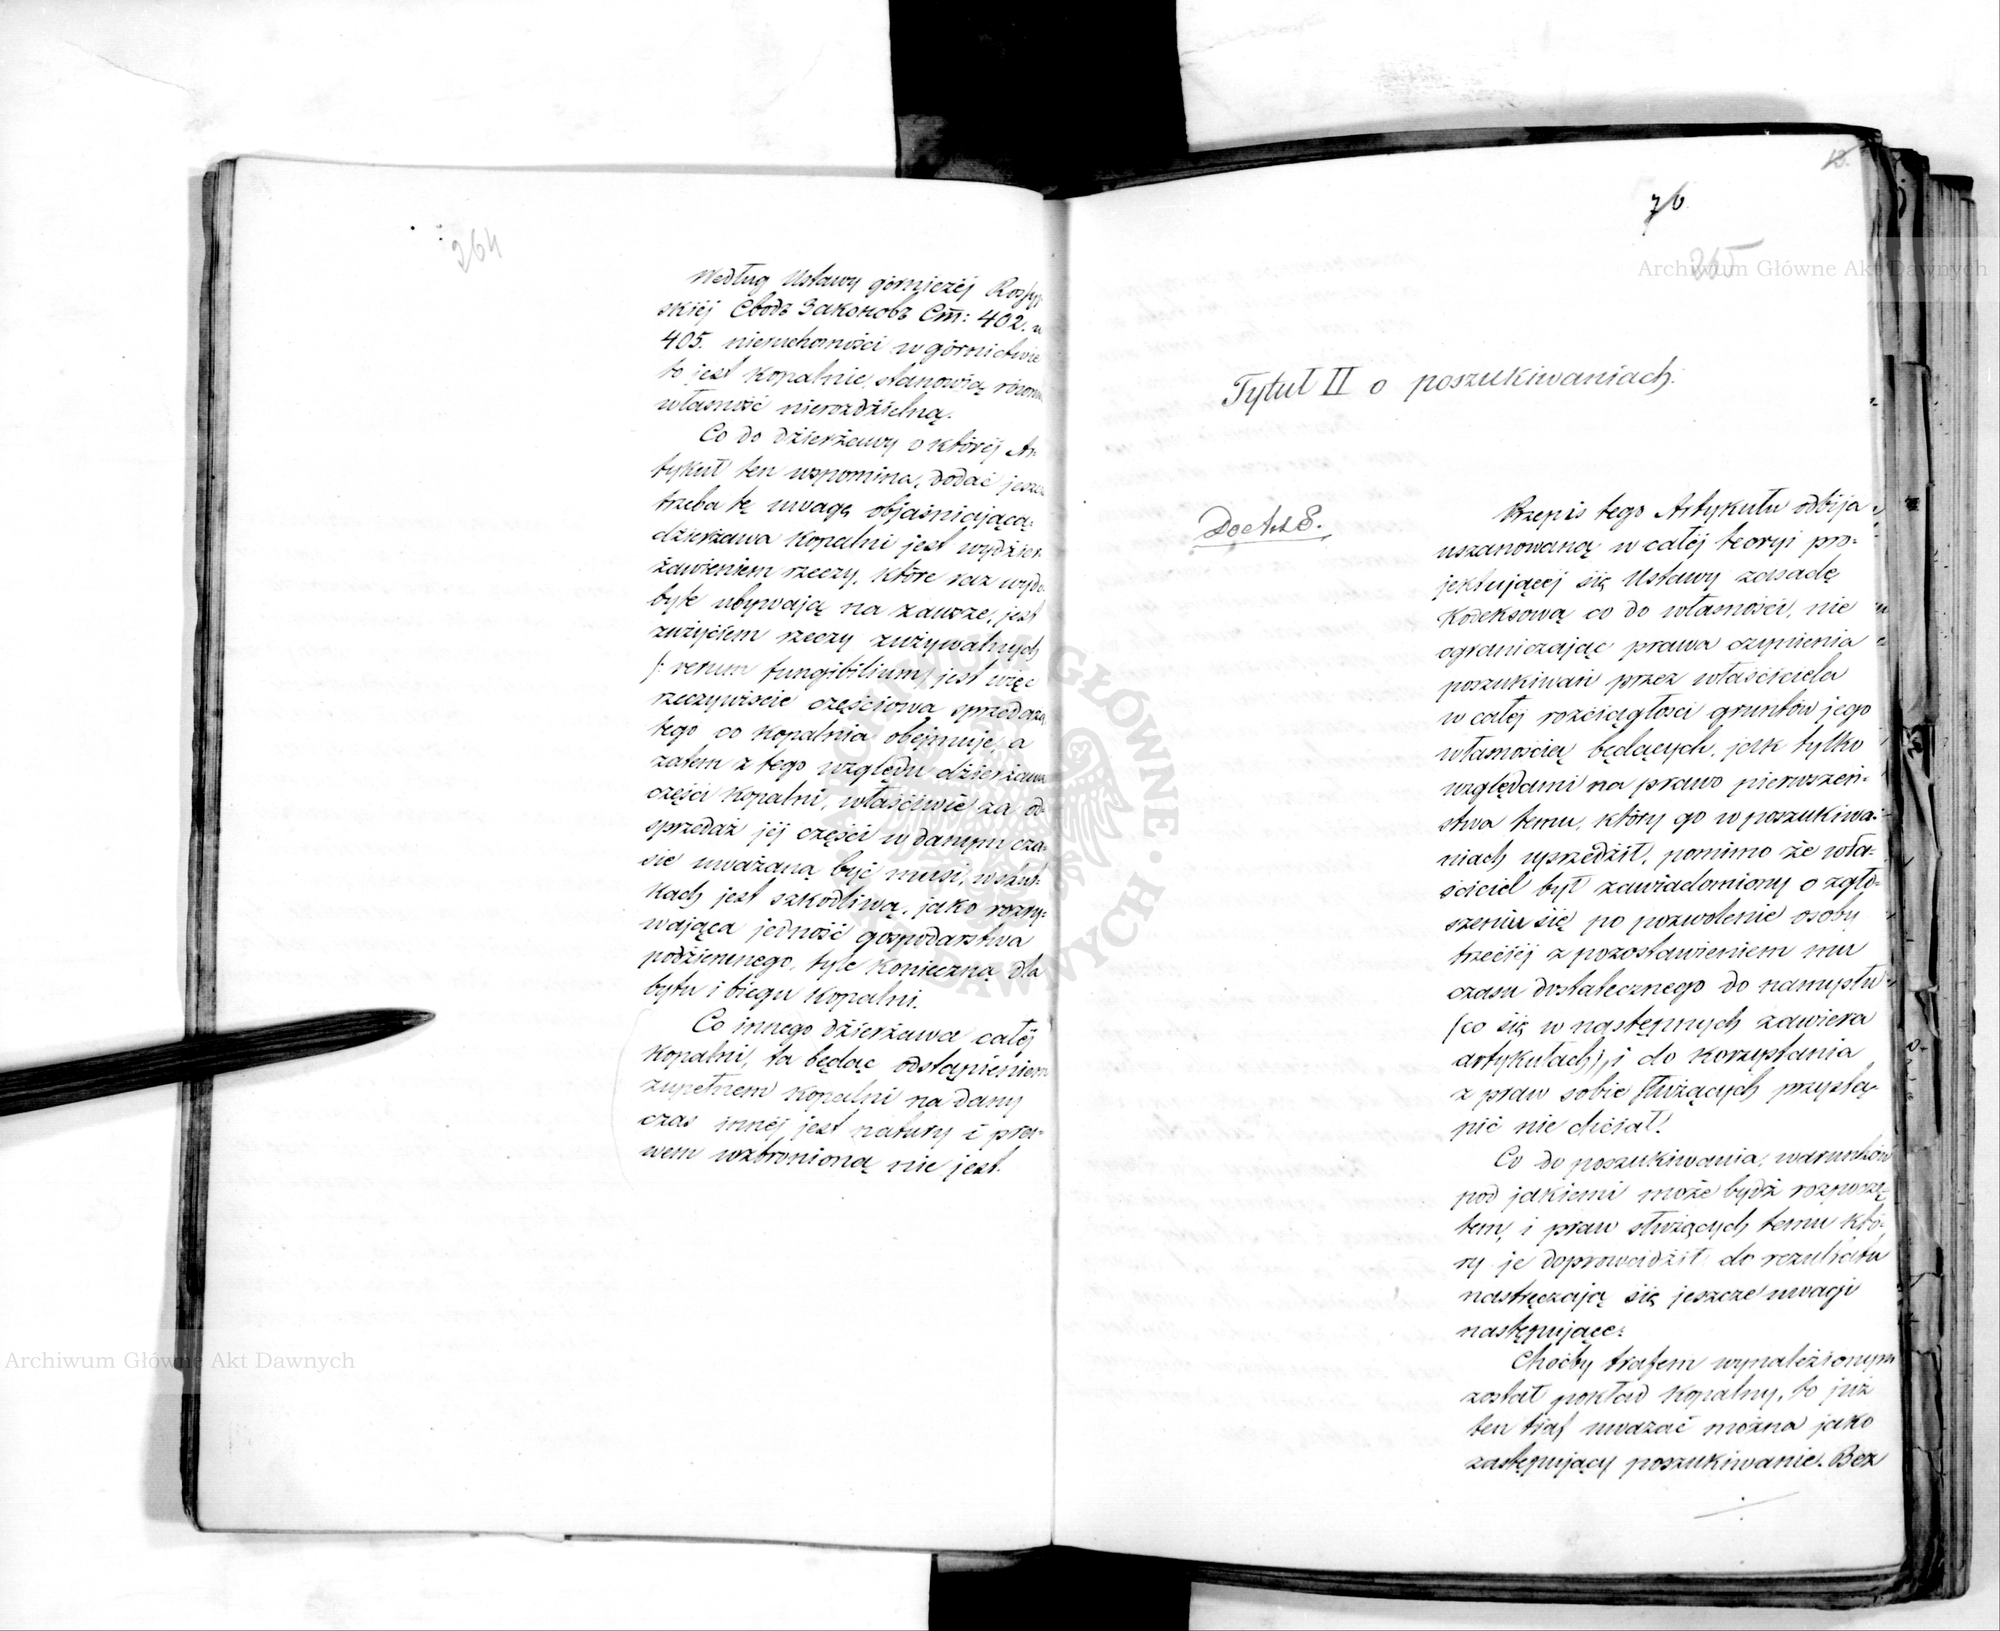 264
Według Ustawy górniczéj Rossyj-
skiéj Сводъ Законовъ Ст: 402. и
405. nieruchomości w górnictwie
to jest kopalnie, stanowią równie
własność nierozdzielną.
Co do dzierżawy o któréj Ar-
tykuł ten wspomina, dodać jeszcze
trzeba tę uwagę objaśniającą:
dzierżawa kopalni jest wydzier-
żawieniem rzeczy, które raz wydo-
byte ubywają na zawsze, jest
zużyciem rzeczy zużywalnych
/: rerum fungibilium/ jest więc
rzeczywiście częściowa sprzedaża
tego co kopalnia obejmuje, a
zatem z tego względu dzierżawa
części kopalni, właściwie za od-
sprzedaż jéj części w danym cza-
sie uważaną być musi, w skut-
kach jest szkodliwą, jako rozry-
wająca jedność gospodarstwa
podziemnego, tyle konieczną dla
bytu i biegu kopalni.
Co innego dzierżawa całéj
kopalni, ta będąc odstąpieniem
zupełnem kopalni na dany
czas innéj jest natury i pra-
wem wzbronioną nie jest.
13.
76
265
Tytuł II o poszukiwaniach.
Do Art 8.
Przepis tego Artykułu odbija
uszanowaną w całéj teoryi pro-
jektującéj się Ustawy zasadę
Kodeksową co do własności, nie
ograniczając prawa czynienia
poszukiwań przez właściciela
w całéj rozciągłości gruntów jego
własnością będących, jak tylko
względami na prawo pierwszeń-
stwa temu, który go w poszukiwa-
niach uprzedził, pomimo że wła-
ściciel był zawiadomiony o zgło-
szeniu się po pozwolenie osoby
trzeciéj z pozostawieniem mu
czasu dostatecznego do namysłu
(co się w następnych zawiera
artykułach), i do korzystania
z praw sobie służących przystą-
pić nie chciał.
Co do poszukiwania, warunków
pod jakiemi może bydź rozpoczę-
tem, i praw służących temu któ-
ry je doprowadził do rezultatu
nastręczają się jeszcze uwagi
następujące:
Choćby trafem wynalezionym
został pokład kopalny, to już
ten traf uważać można jako
zastępujący poszukiwanie. Bez
Archiwum Główne Akt Dawnych
Archiwum Główne Akt Dawnych
ARCHIWUM GŁÓWNE AKT DAWNYCH